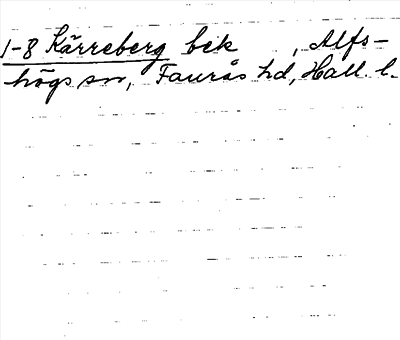 1-8 Kärreberg bek , Alfs-
högs sn, Faurås hd, Hall. l.